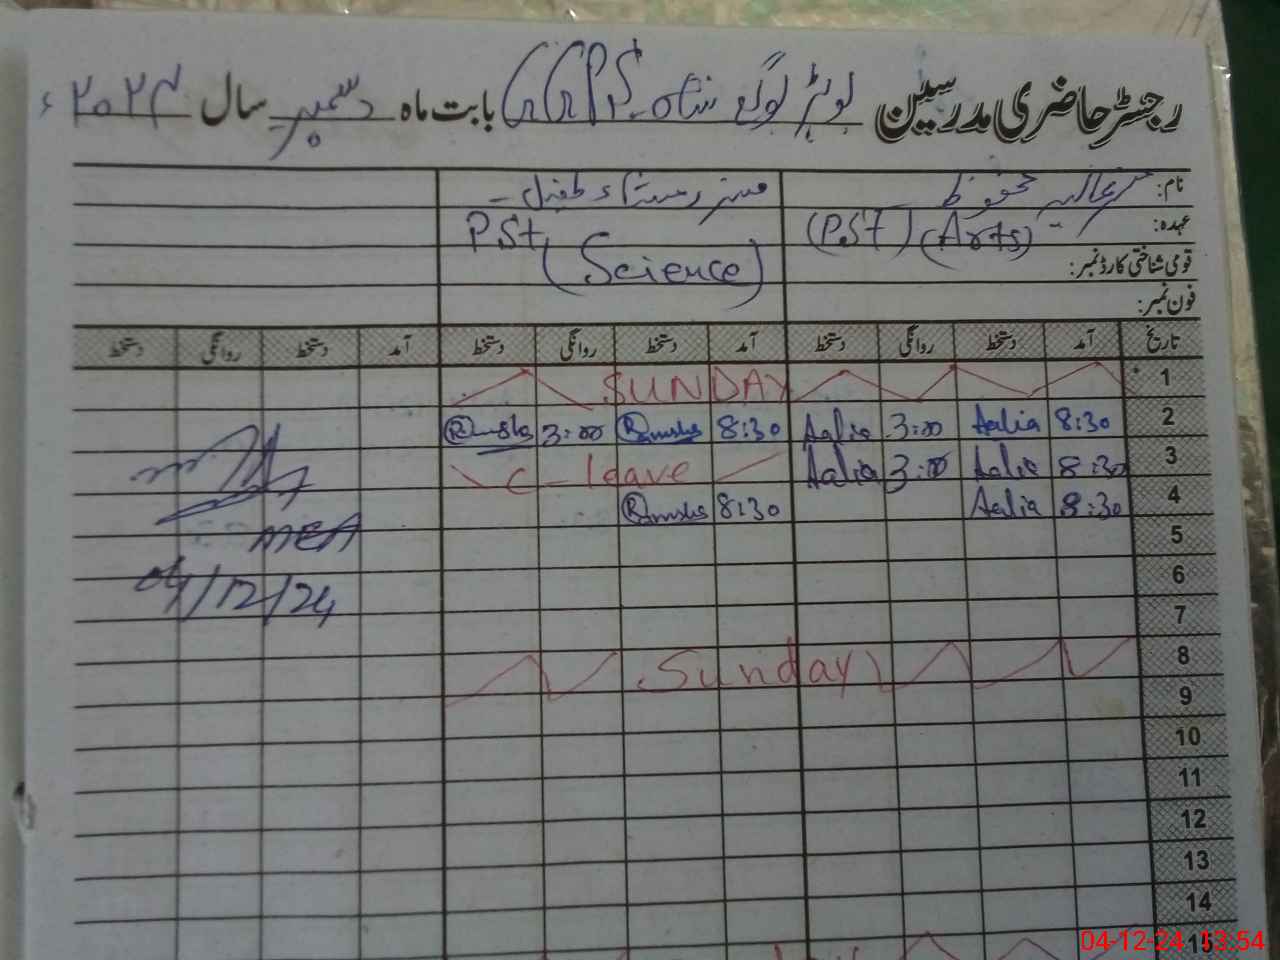 رجسٹر حاضری مدرسین لوئر لوگے شاہ GGPS بابت ماہ دسمبر سال ۲۰۲۴ء
نام: مسز عالیہ محفوظ مسز رمشاء طفیل
عہدہ: (PST) (Arts) PST (Science)
قومی شناختی کارڈ نمبر:
فون نمبر:
تاریخ آمد دستخط روانگی دستخط آمد دستخط روانگی دستخط آمد دستخط روانگی دستخط
1 SUNDAY
2 8:30 Aalia 3:00 Aalia 8:30 Rimsha 3:00 Rimsha
3 8:30 Aalia 3:00 Aalia C-leave
4 8:30 Aalia 8:30 Rimsha
5
MEA
6
04/12/24
7
8 Sunday
9
10
11
12
13
14
15
04-12-24 13:54